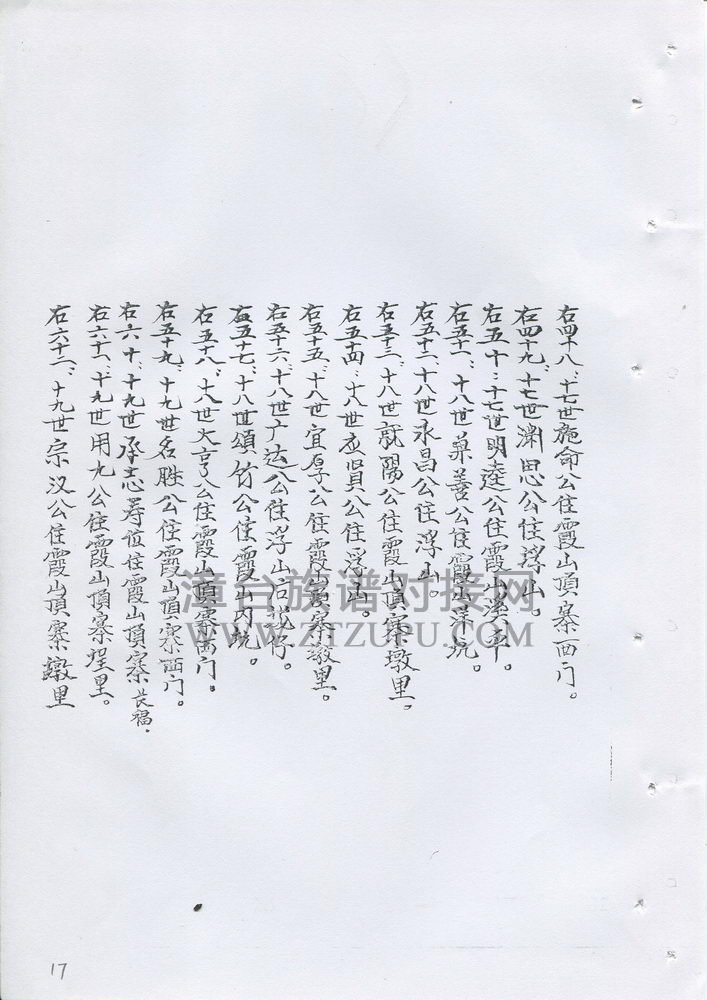 右四十八、十七世施命公住霞山頂寨西门。
右四十九、十七世渊思公住浮山。
右五十、十七世明逵公住霞山溪
右五十一、十八世兼善公住霞山深坑。
右五十二、十八世永昌公住浮山。
右五十三、十八世就陽公住霞山頂寨墩里。
右五十四、十八世应賢公住浮山。
右五十五、十八世宜厚公住霞山頂寨墩里。
右五十六、十八世广达公住浮山
右五十七、十八世頌竹公住霞山内坑。
右五十八、十八世大亨公住霞山頂寨西门。
右五十九、十九世名胜公住霞山頂寨西门。
右六十、十九世承志寿位住霞山頂寨長福.
右六十一、十九世用九公住霞山頂寨埕里。
右六十二、十九世宗汉公住霞山頂寨墩里
漳台族谱对接网
WWW.ZTZUPU.COM
17